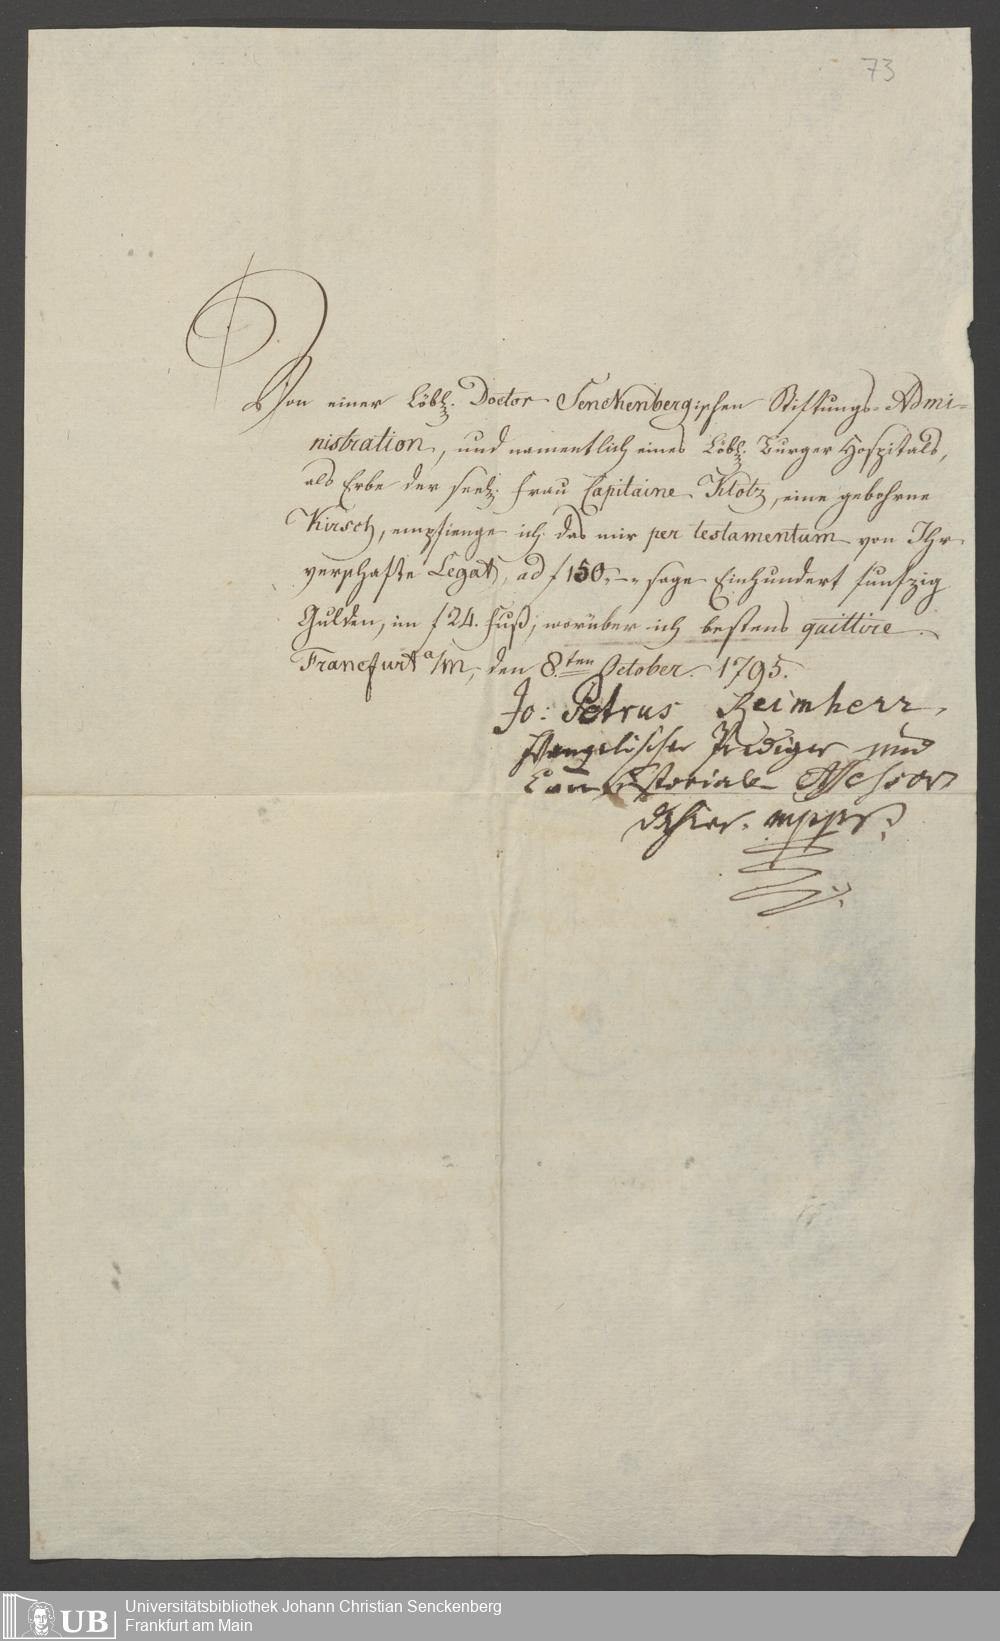 73
Von einer Löbl. Doctor Senckenbergischen Stiftungs-Admi-
nistration, und namentlich eines Löbl. Burger Hospitals,
als Erbe der seel. Frau Capitaine Klotz, eine gebohrne
Kirsch, empfienge ich das mir per testamentum von Ihr
verschafte Legat, ad f 150,-„ sage Einhundert funfzig
Gulden, im f 24. Fuß, worüber ich bestens quittire.
Francfurt a/m, den 8.ten October. 1795.
Jo: Petrus Reimherr,
Evangelischer Prediger und
Consistorial Assessor
dahier. mppr.
UB
Universitätsbibliothek Johann Christian Senckenberg
Frankfurt am Main